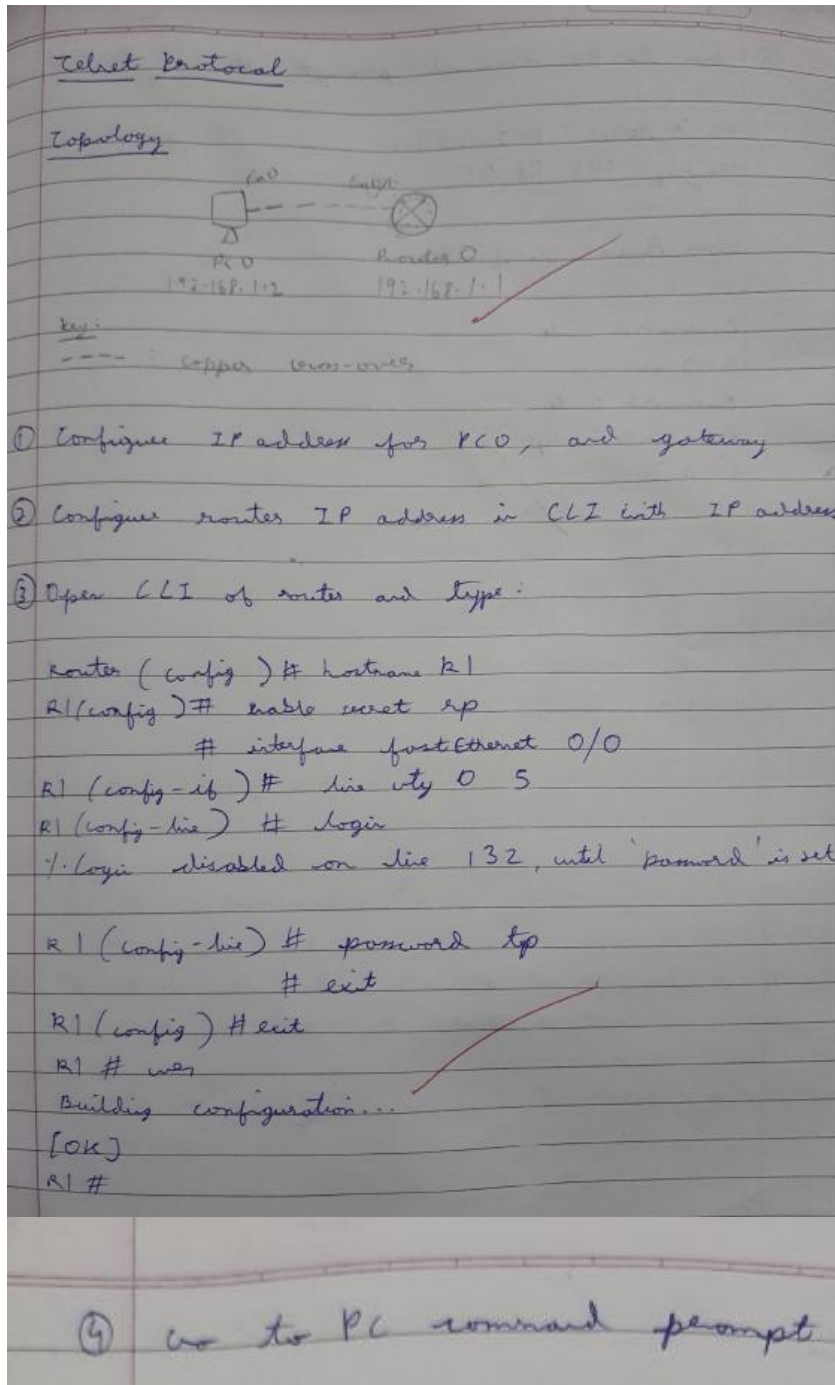 Telnet Protocol
Topology
Fa0 Fa0/0
PC0 Router 0
192.168.1.2 192.168.1.1
key:
---- : copper cross-over
① Configure IP address for PC0, and gateway
② Configure router IP address in CLI with IP address
③ Open CLI of router and type:
Router (config) # hostname R1
R1(config) # enable secret rp
# interface fastEthernet 0/0
R1 (config-if) # line vty 0 5
R1 (config-line) # login
% Login disabled on line 132, until 'password' is set
R1 (config-line) # password tp
# exit
R1 (config) # exit
R1 #
Building configuration...
[OK]
R1 #
④ Go to PC command prompt